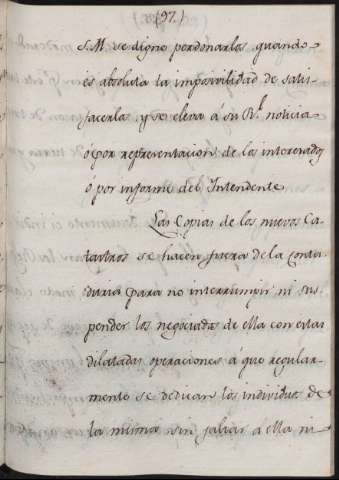 (97)
S. M. se digne perdonarlas quando
es absoluta la imposivilidad de satis
facerlas, y se eleva á su Rl. noticia
ó por representacion de los interesados
ó por informe del Intendente.
Las Copias de los nuevos Ca
tastros se hacen fuera de la conta
duria para no interrumpir ni sus
pender los negociados de ella con estas
dilatadas operaciones á que regular
mente se dedican los individuos de
la misma sin faltar á ella ni